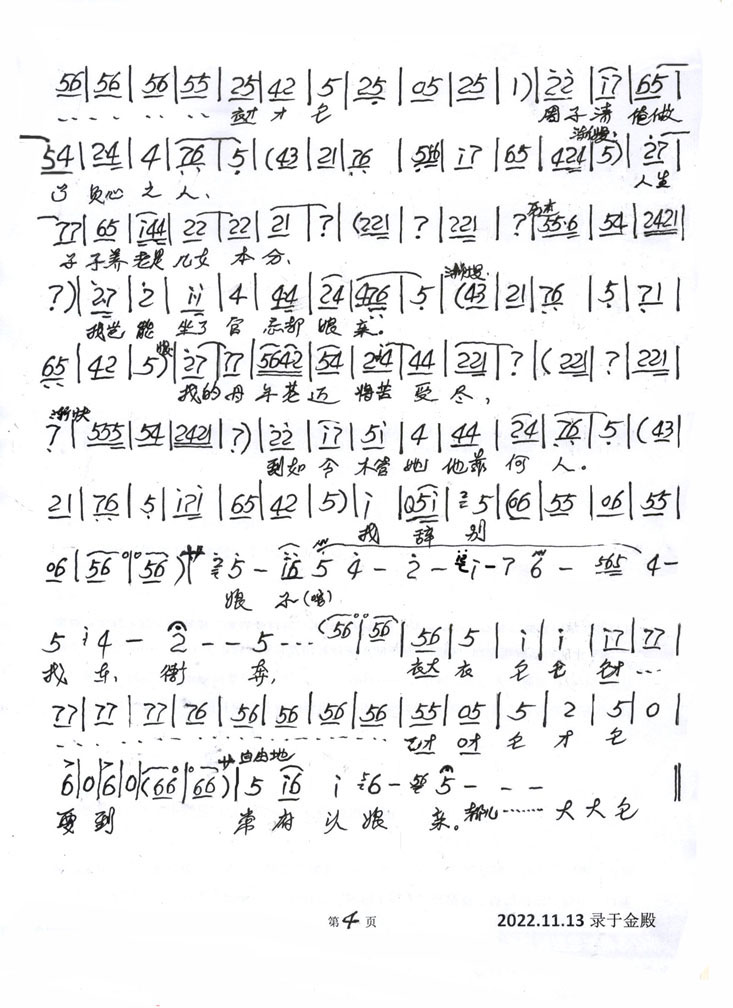 56|56|56|55|25|42|5|25|05|25|1)|22|i7|65|
衣才 才 乇 周子清 俺做
54|24|4|76|5|(43|21|76|56|i7|65|424|5)|27|
渐慢
了 负心 之 人、 人生
77|65|i44|22|22|21|7|(221|7|221|7|55·6|54|2421|
子子养老是儿女 本分、
7)|27|2|ii|4|44|24|476|5|(43|21|76|5|71|
渐慢
我岂能 坐了 官 忘却 娘亲。
65|42|5)|27|77|5642|54|24|44|221|7|(221|7|221|
慢
我的母 年老迈 将苦 受 尽，
渐快
7|555|54|2421|7)|22|i7|5i|4|44|24|76|5|(43|
到如 今 不管 她 他靠 何 人。
21|76|5|i7i|65|42|5)|i|05i|5|(06|55|06|55|
我 辞 别
06|56|56)|5-i6 5 4-2-i-7 6-565 4-
娘 子(哈)
5 i 4-2--5…(56|56|56|5|i|i|i7|77|
我 东 衙 奔， 衣大 衣 乇 乇 乇才 …
77|77|77|76|56|56|56|56|55|05|5|2|5|0|
乇才 0才 乇 才 乇
6|0|6|0|(66|66)|5 i6 i 6-5---‖
自由地
要到 常府 认娘 亲。都儿…… 大大乇
第4页
2022.11.13 录于金殿